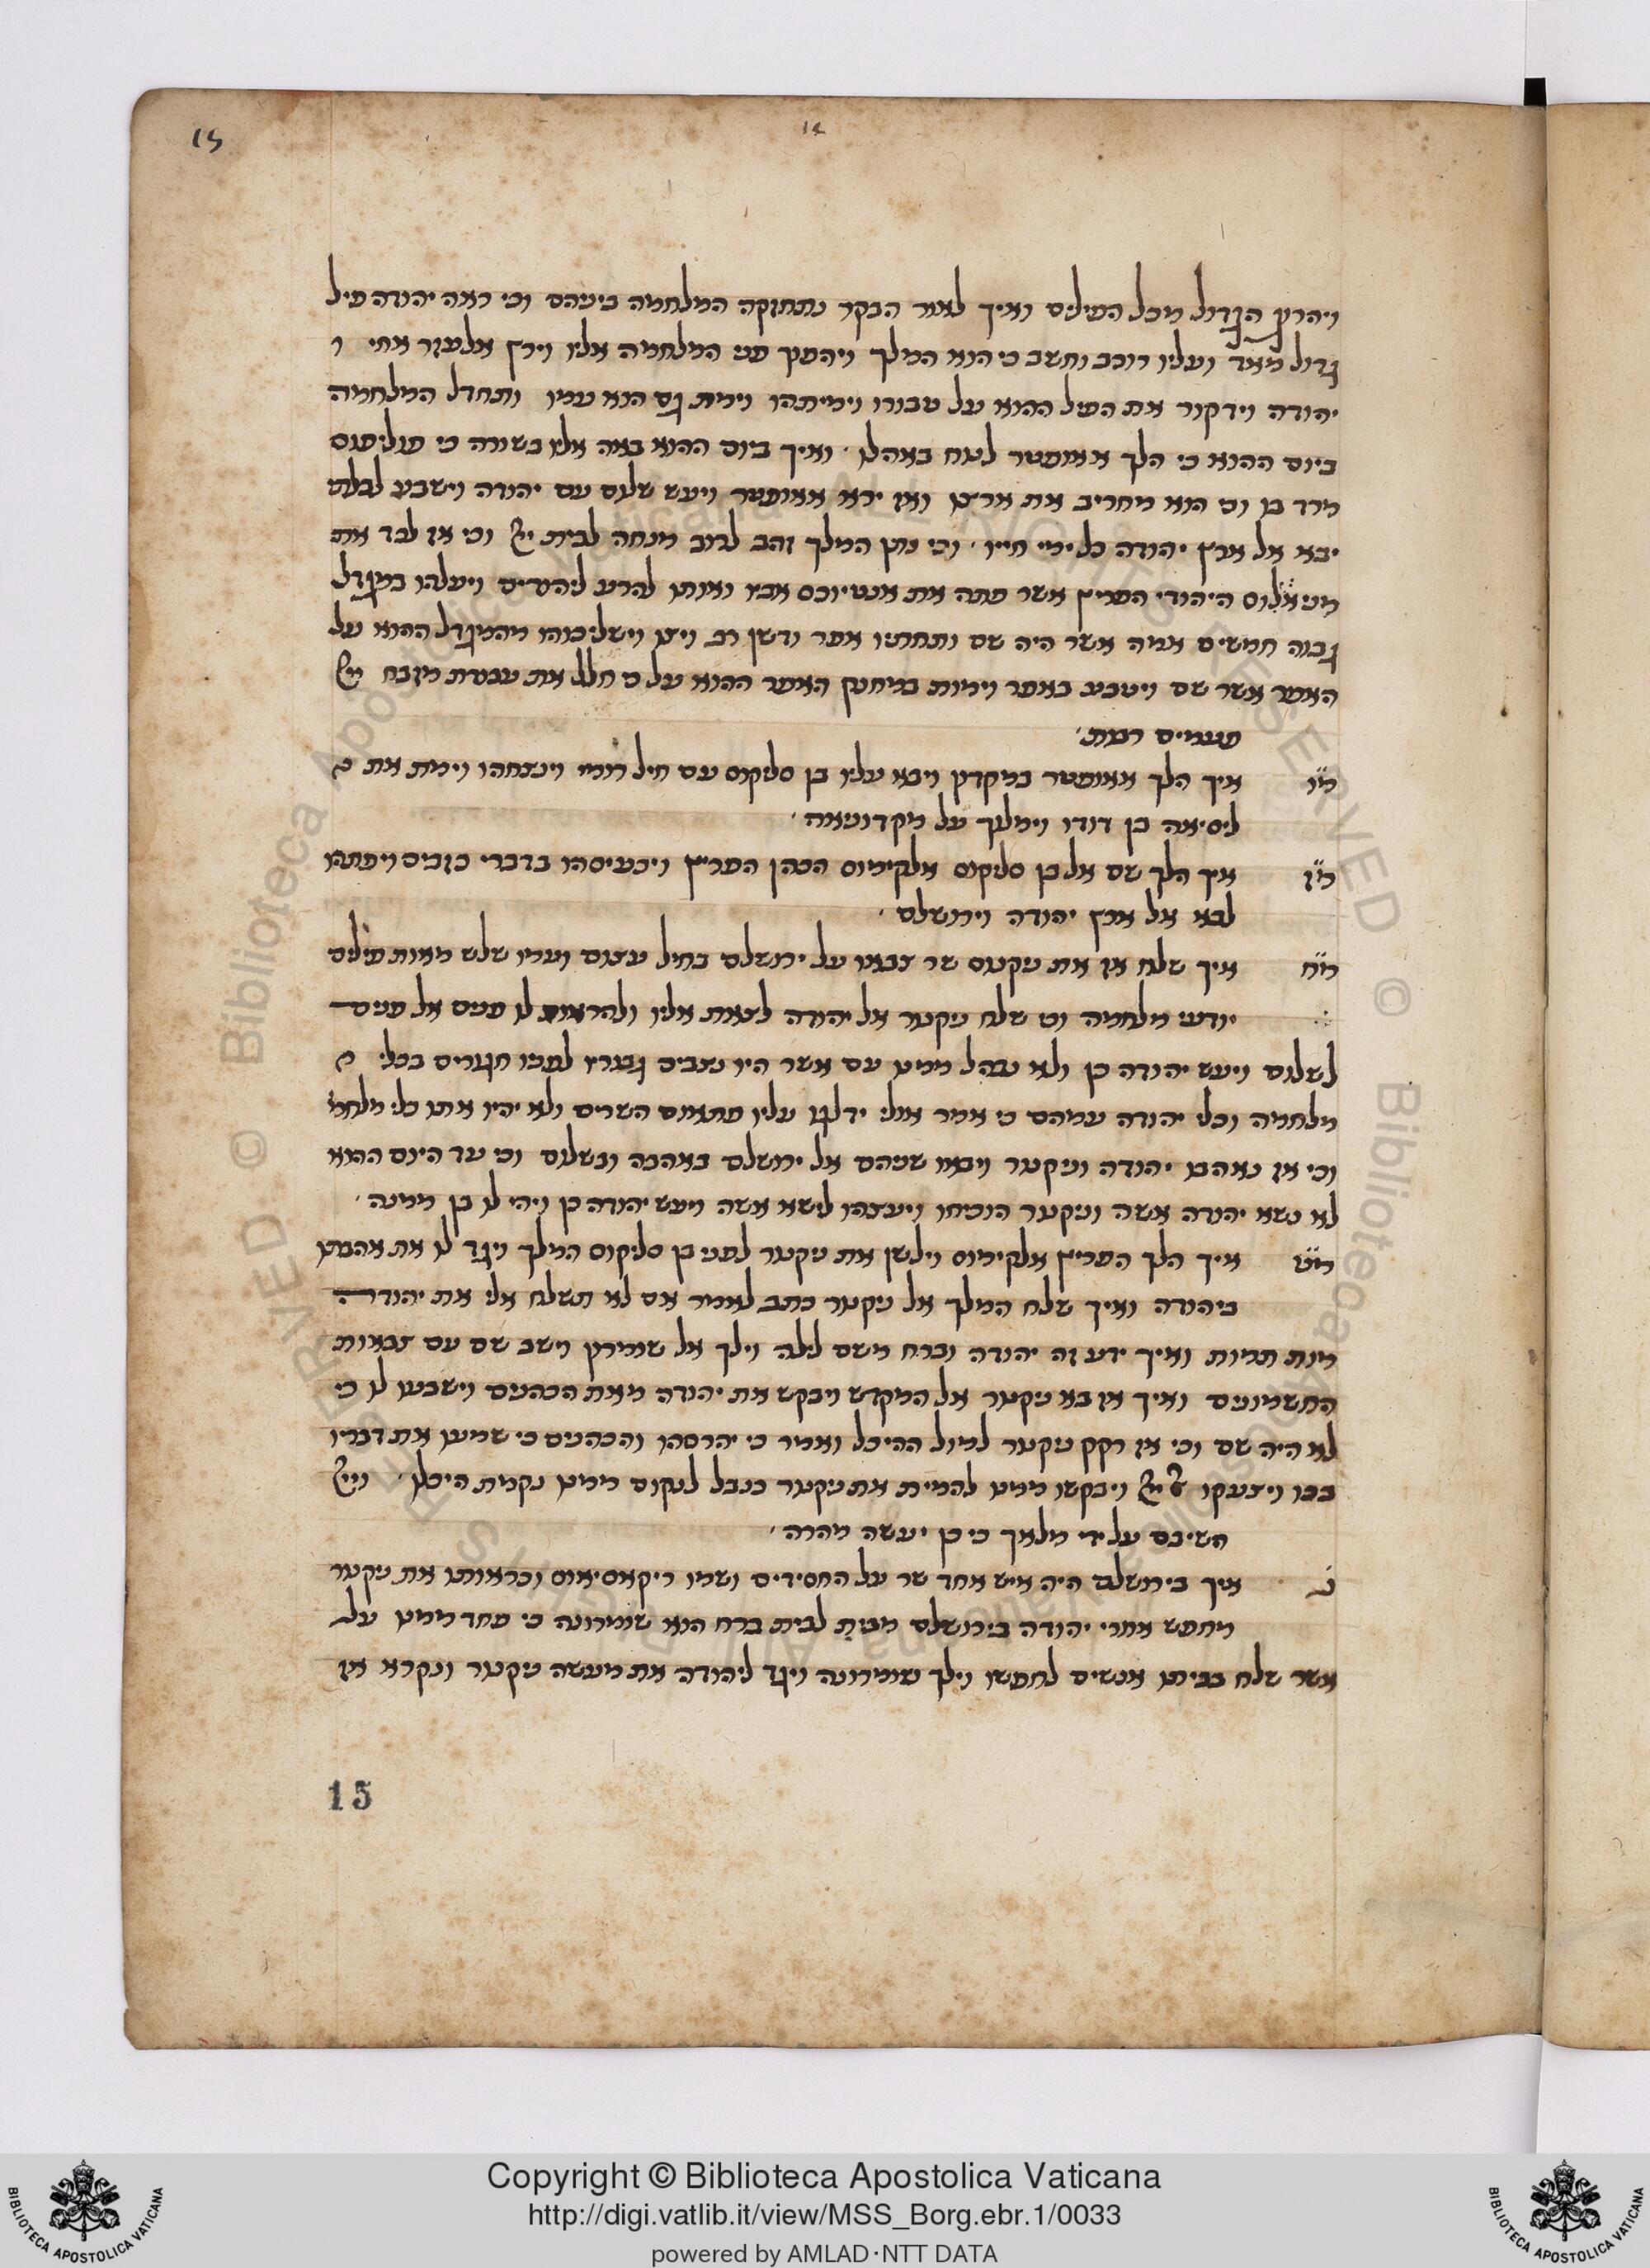 15
ויהרגו הגדול מכל הפילים ואיך לאור הבקר נתחזקה המלחמה ביניהם וכי ראה יהודה פיל
גדול מאד ועליו רוכב וחשב כי הוא המלך ויהפך פני המלחמה אליו וירץ אלעזר אחי ו
יהודה וידקור את הפיל ההוא על טבורו וימיתהו וימת גם הוא עמו ותחדל המלחמה
ביום ההוא כי הלך אאופטר לנוח באהלו ואיך ביום ההוא באה אליו בשורה כי פוליפוס
מרד בו וכי הוא מחריב את ארצו ואז ירא אאופטר ויעש שלום עם יהודה וישבע לבלתי
יבא אל ארץ יהודה כל ימי חייו וכי נתן המלך זהב לרוב מנחה לבית ייי וכי אז לכד את
מניאלוס היהודי הפריץ אשר פתה את אנטיוכס אביו ואותו להרע ליהודים ויעלהו במגדל
גבוה חמשים אמה אשר היה שם ותחתיו אפר ודשן רב ויצו וישליכוהו מהמגדל ההוא על
האפר אשר שם ויטבע באפר וימות במחנק האפר ההוא על כי חלל את עבודת מזבח ייי
פעמים רבות
מ״ו איך הלך אאופטר במקדון ויבא עליו בן סליקוס עם חיל רומי וינצחהו וימת את
ליסיאה בן דודו וימלוך על מקדוניאה
מ״ז איך הלך שם אל בן סליקוס אלקימוס הכהן הפריץ ויכעיסהו בדברי כזבים ויפתהו
לבא אל ארץ יהודה וירושלם
מ״ח איך שלח אז את ניקנור שר צבאו על ירושלם בחיל עצום ועמו שלש מאות פילים
יודעי מלחמה וכי שלח ניקנור אל יהודה לצאת אליו ולהראות לו פנים אל פנים
לשלום ויעש יהודה כן ולא נבהל ממנו עם אשר היו נצבים גבוריו לפניו חגורים בכלי
מלחמה וכלי יהודה עמהם כי אמר אולי ידלגו עליו פתאום השרים ולא יהיו אתו כלי מלחמה
וכי אז נאהבו יהודה וניקנור ויבאו שניהם אל ירושלם באהבה ובשלום וכי עד היום ההוא
לא נשא יהודה אשה וניקנור הוכיחו ויעצהו לישא אשה ויעש יהודה כן ויהי לו בן ממנה
מ״ט איך הלך הפריץ אלקימוס וילשין את ניקנור לפני בן סליקוס המלך ויגד לו את אהבתו
ביהודה ואיך שלח המלך אל ניקנור כתב לאמר אם לא תשלח אלי את יהודה
מות תמות ואיך ידע זה יהודה וברח משם לילה וילך אל שומרון וישב שם עם צבאות
החשמונים ואיך אז בא ניקנור אל המקדש ויבקש את יהודה מאת הכהנים וישבעו לו כי
לא היה שם וכי אז רקק ניקנור למול ההיכל ואמר כי יהרסהו והכהנים כי שמעו את דבריו
בכו ויצעקו ייי ויבקשו ממנו להמית את ניקנור כנבל לנקום ממנו נקמת היכלו וייי
השיבם על ידי מלאך כי כן יעשה מהרה
נ איך בירושלם היה איש אחד שר על החסידים ושמו ריקאסיאוס וכראותו את ניקנור
מחפש אחרי יהודה בירושלם מבית לבית ברח הוא שומרונה כי פחד ממנו על
אשר שלח בביתו אנשים לחפשו וילך שומרונה ויגד ליהודה את מעשה ניקנור ונקרא אז
15
Copyright © Biblioteca Apostolica Vaticana
http://digi.vatlib.it/view/MSS_Borg.ebr.1/0033
powered by AMLAD·NTT DATA
BIBLIOTECA APOSTOLICA VATICANA
BIBLIOTECA APOSTOLICA VATICANA